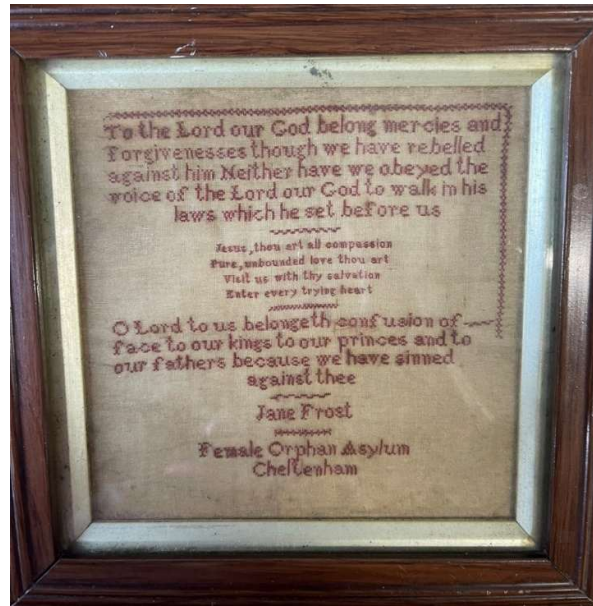 To the Lord our God belong mercies and
Forgivenesses though we have rebelled
against him Neither have we obeyed the
voice of the Lord our God to walk in his
laws which he set before us
Jesus, thou art all compassion
Pure, unbounded love thou art
Visit us with thy salvation
Enter every trying heart
O Lord to us belongeth confusion of
face to our kings to our princes and to
our fathers because we have sinned
against thee
Jane Frost
Female Orphan Asylum
Cheltenham